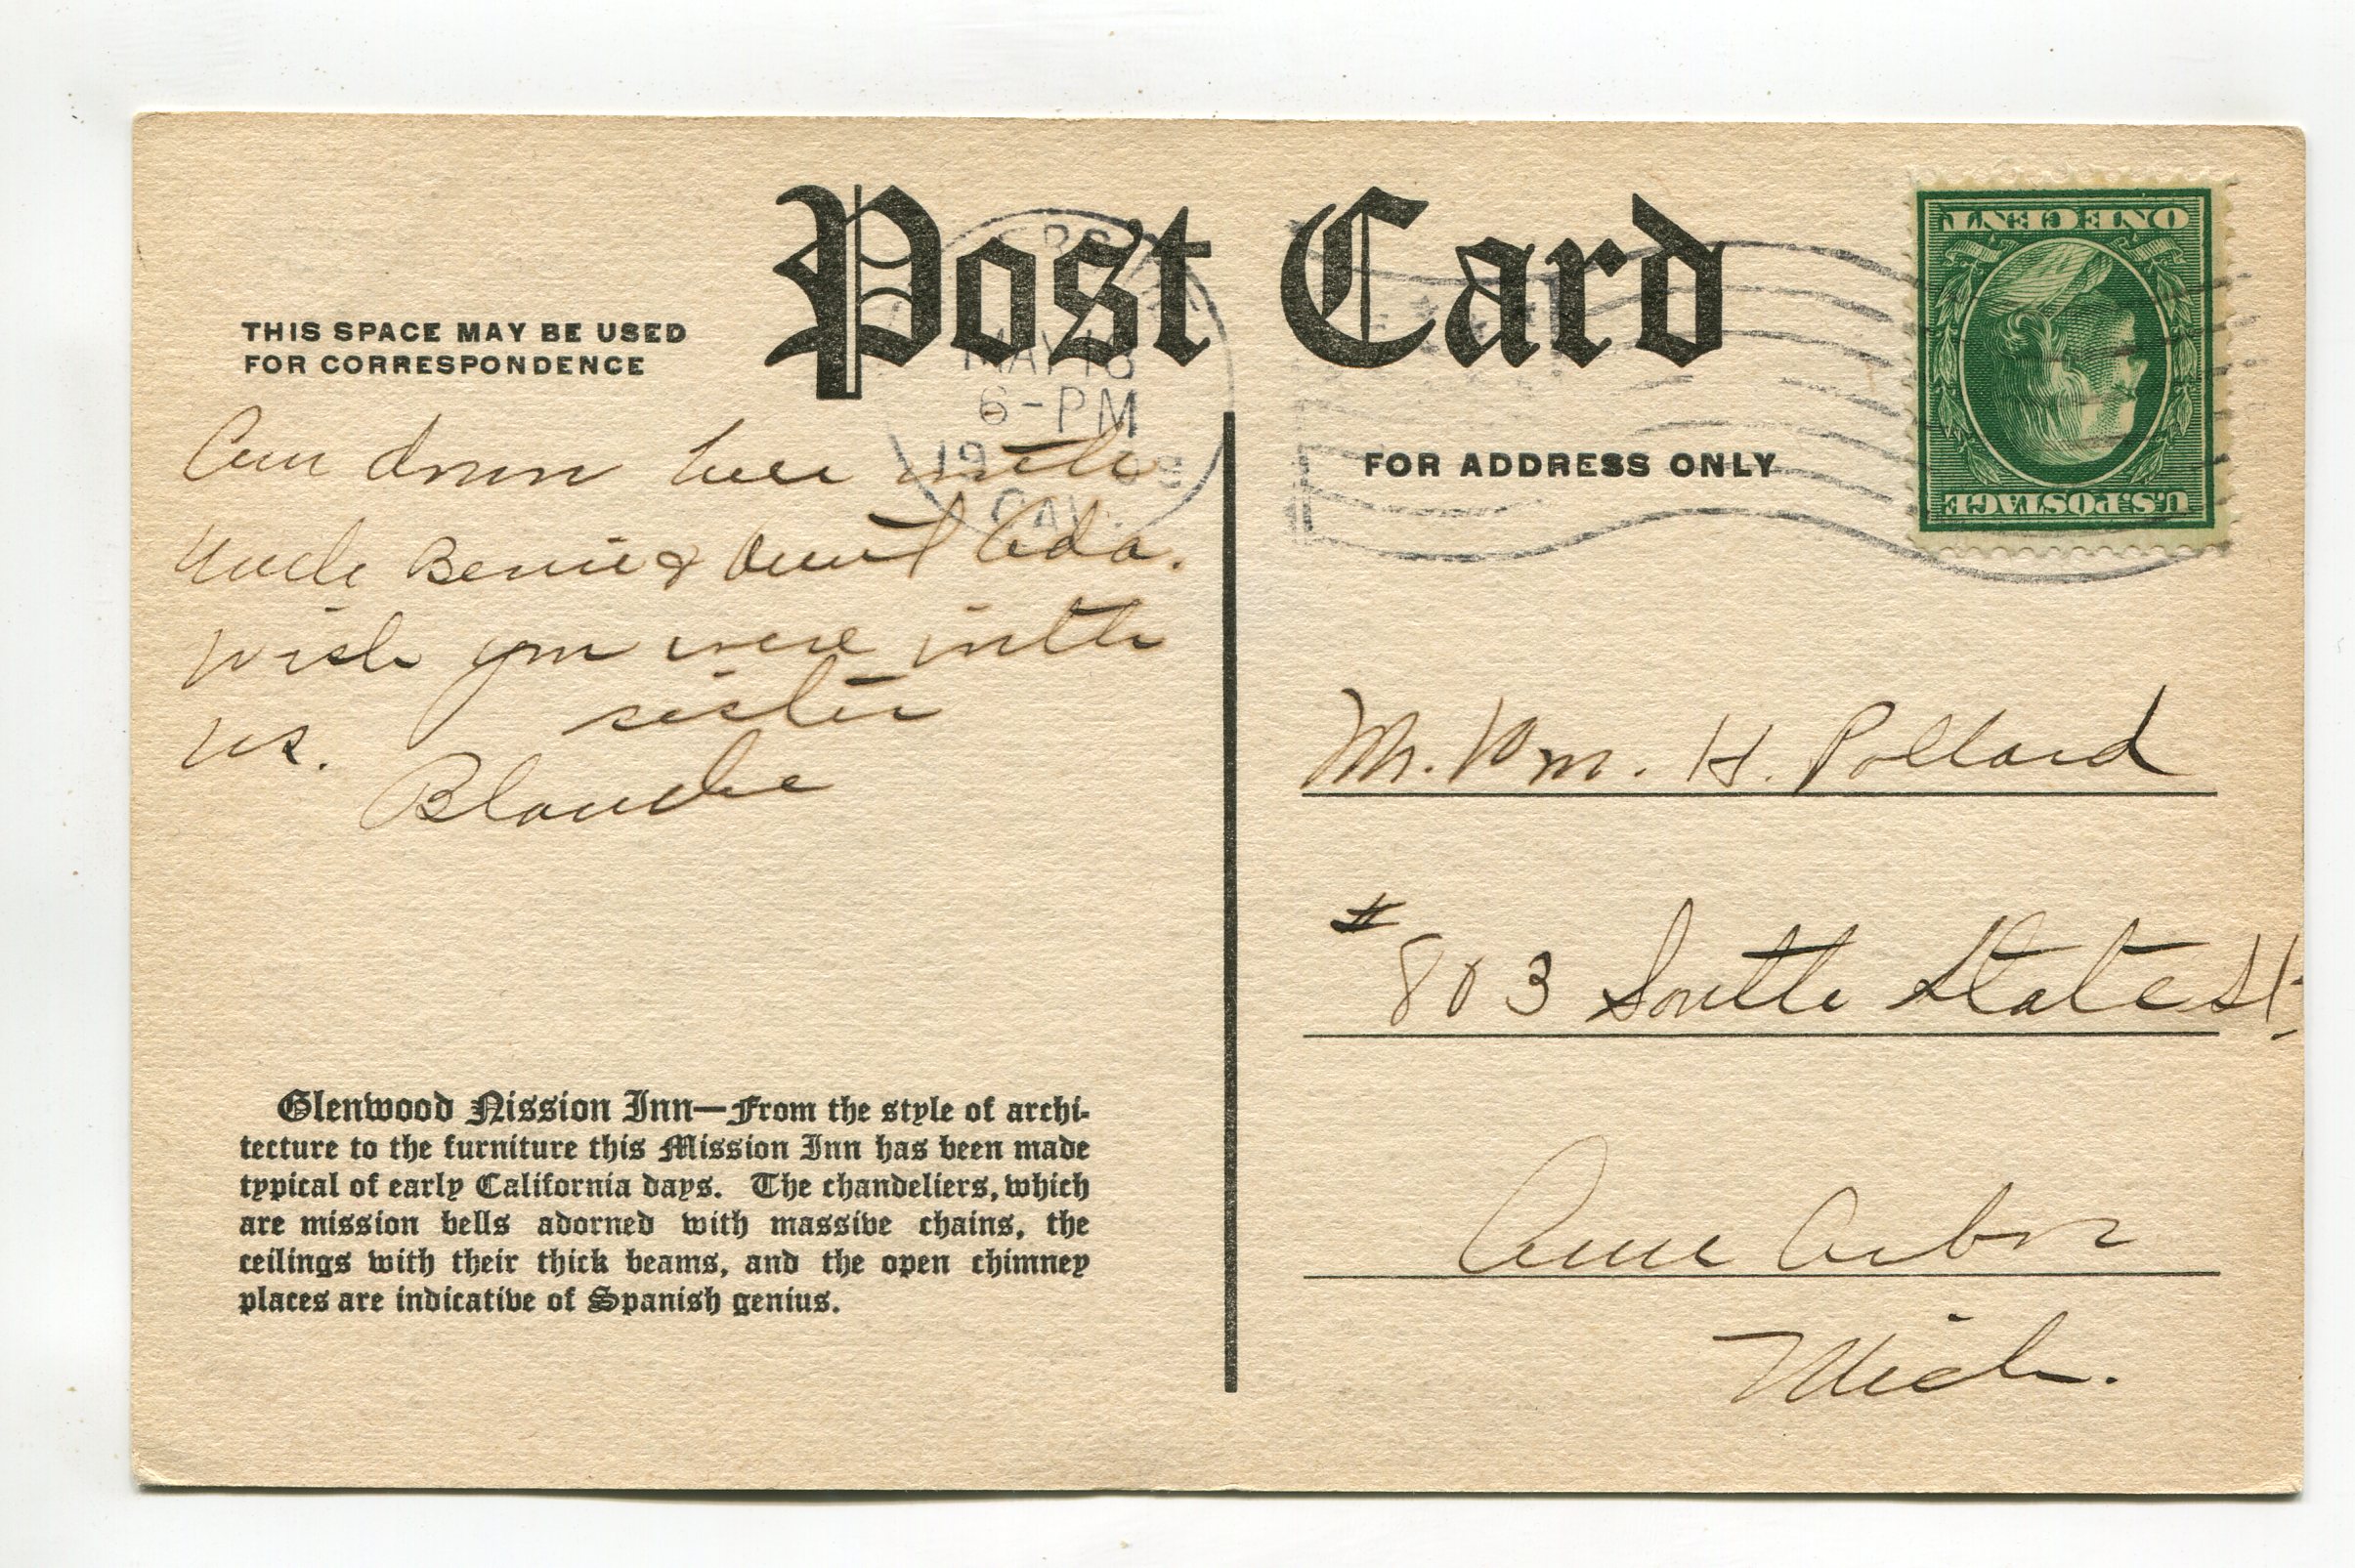 Post Card
THIS SPACE MAY BE USED
FOR CORRESPONDENCE
MAY 18
6-PM
1909
CAL.
FOR ADDRESS ONLY
ONE CENT
U.S. POSTAGE
Am down here with
Uncle Bernie & Aunt Ada.
Wish you were with
us. sister
Blanche
Mr. Wm. H. Pollard
# 803 South State St.
Ann Arbor
Mich.
Glenwood Nission Inn—From the style of archi-
tecture to the furniture this Mission Inn has been made
typical of early California days. The chandeliers, which
are mission bells adorned with massive chains, the
ceilings with their thick beams, and the open chimney
places are indicative of Spanish genius.